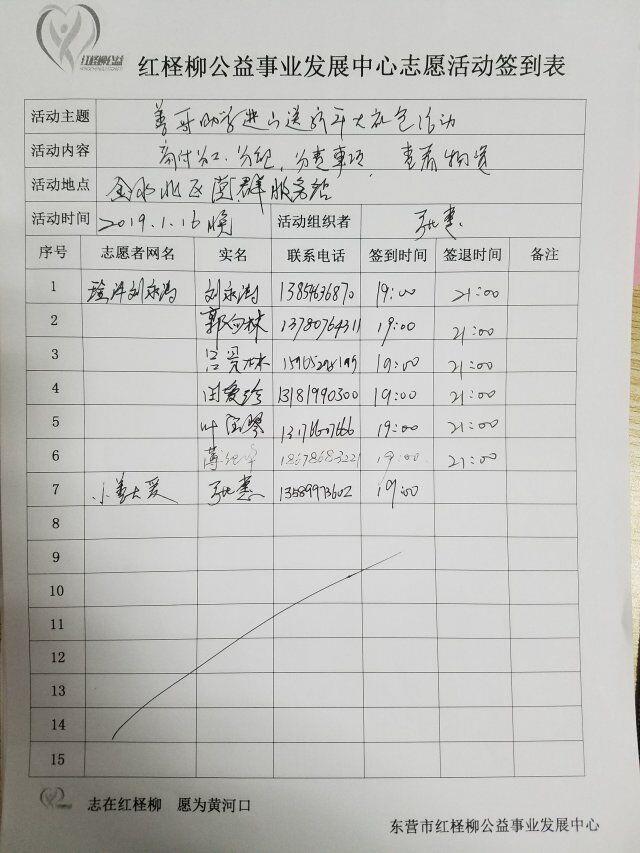 红柽柳公益
红柽柳公益事业发展中心志愿活动签到表
活动主题 善哥助学进山送新年大礼包活动
活动内容 分组, 负责事项, 查看物资
活动地点 金水北区党群服务站
活动时间 2019.1.16晚 活动组织者 张惠
序号 志愿者网名 实名 联系电话 签到时间 签退时间 备注
1 刘永涛 19:00 21:00
2 13780764311 19:00 21:00
3 19:00 21:00
4 田爱珍 13181990300 19:00 21:00
5 19:00 21:00
6 18678683221 19:00 21:00
7 小善大爱 张惠 13589973602 19:00
8
9
10
11
12
13
14
15
志在红柽柳 愿为黄河口
东营市红柽柳公益事业发展中心